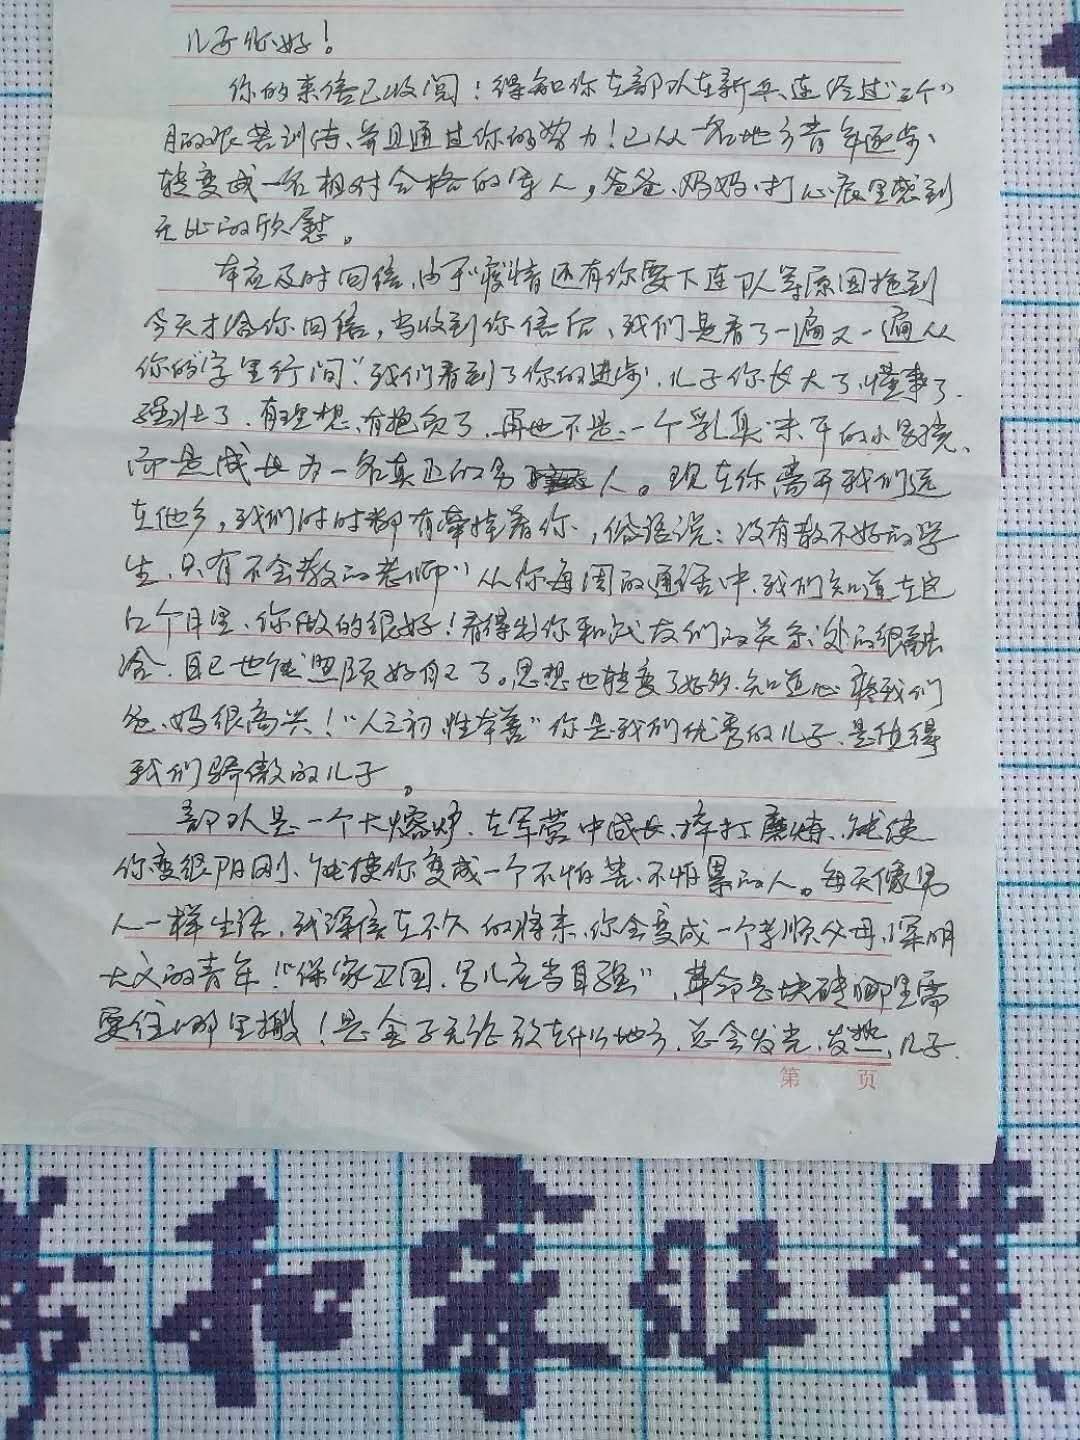 儿子你好！
你的来信已收阅！得知你在部队在新兵连经过"三个"
月的艰苦训练、并且通过你的努力！已从一名地方青年逐步、
转变成一名相对合格的军人，爸爸、妈妈、打心底里感到
无比的欣慰。
本应及时回信，由于"疫情还有你要下连队等原因拖到
今天才给你回信，当收到你信后、我们是看了一遍又一遍从
你的"字里行间"我们看到了你的进步、儿子你长大了、懂事了、
强壮了、有理想、有抱负了、再也不是一个乳臭未干的小男孩、
而是成长为一名真正的男人。现在你离开我们远
在他乡，我们时时都有牵挂着你，俗语说：没有教不好的学
生、只有不会教的老师"从你每周的通话中、我们知道在这
几个月里、你做的很好！看得出你和战友们的关系处的很融
洽、自己也能照顾好自己了。思想也转变了好多、知道心疼我们
爸、妈很高兴！"人之初性本善"你是我们优秀的儿子、是值得
我们骄傲的儿子。
部队是一个大熔炉、在军营中成长、摔打磨炼、能使
你变很阳刚、能使你变成一个不怕苦、不怕累的人。每天像男
人一样生活，我深信在不久的将来、你会变成一个孝顺父母、深明
大义的青年！"保家卫国、男儿应当自强"，革命是块砖哪里需
要往哪里搬！是金子无论放在什么地方、总会发光、发热、儿子、
第 页
和家旺